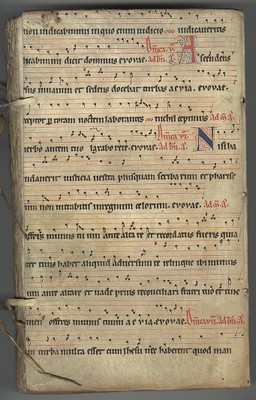 non iudicabimini in quo enim iudicio iudicaveritis
dicabimini dicit dominus evovae. Dnica v. ad bn. A. Ascendens
ihs in navim et sedens docebat turbas aevia. evovae.
ceptor per totam noctem laborantes nichil cepimus
verbo autem tuo laxabo rete. evovae. Dnica vi. ad bn. A. Nisi ha
bundaverit iusticia vestra plusquam scribarum et pharise
non intrabitis in regnum celorum. evovae. ad m. A.
offeris munus tuum ante altare et recordatus fueris quia
ter tuus habet aliquid adversum te relinque ibi munus
tuum ante altare et vade prius reconciliari fratri tuo et tunc
veniens offeres munus tuum aevia. evovae. Dnica vii. ad bn. A.
cum turba multa esset cum ihesu nec haberent quod man